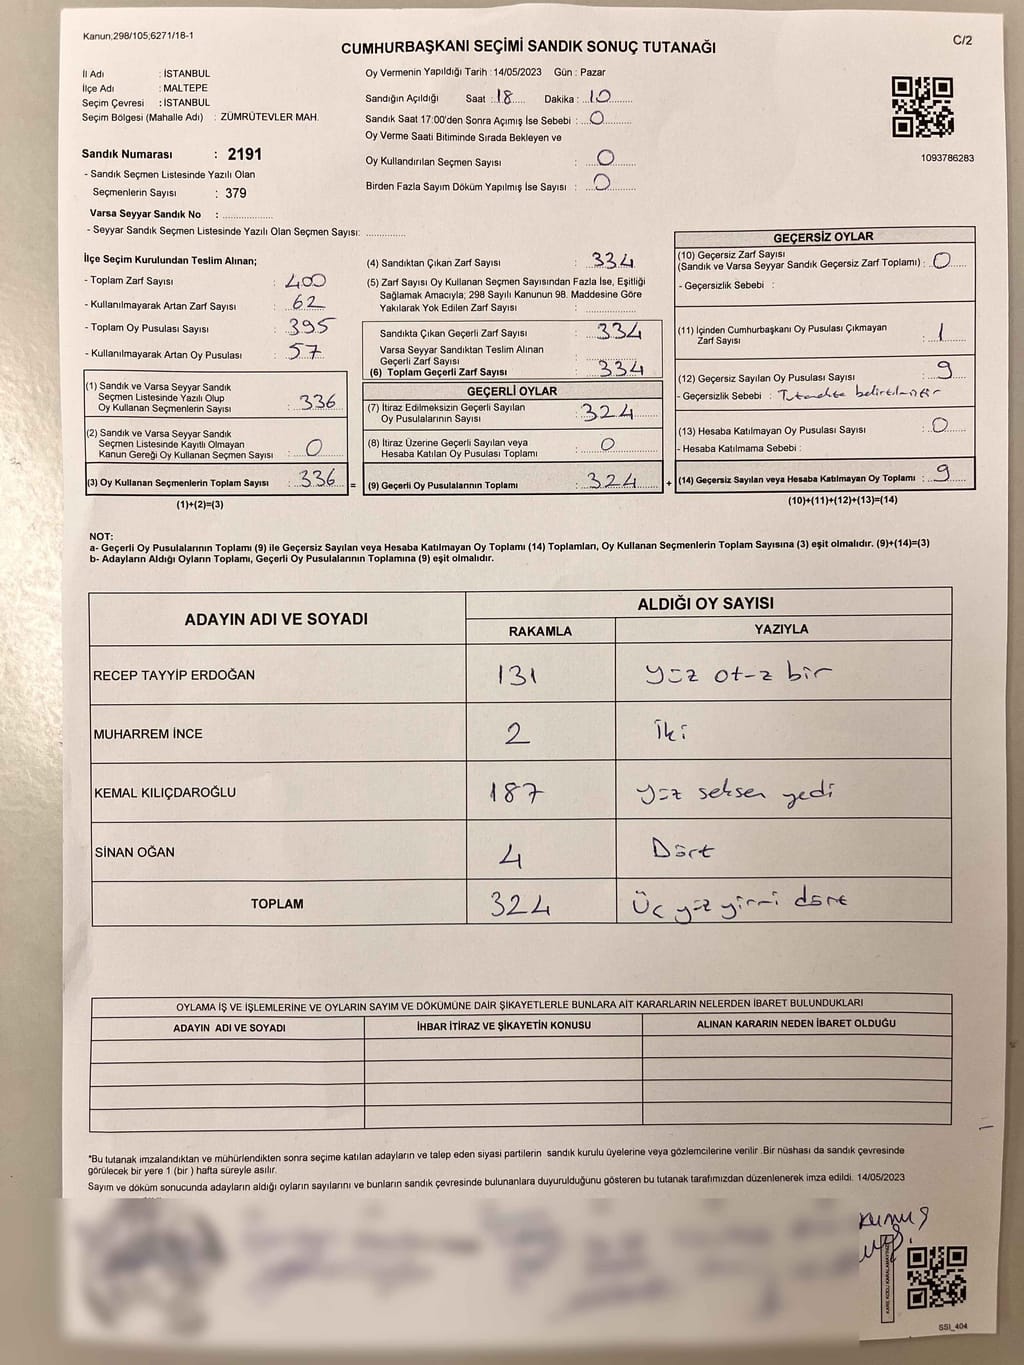 Kanun;298/105;6271/18-1
CUMHURBAŞKANI SEÇİMİ SANDIK SONUÇ TUTANAĞI
C/2
İl Adı : İSTANBUL
İlçe Adı : MALTEPE
Seçim Çevresi : İSTANBUL
Seçim Bölgesi (Mahalle Adı) : ZÜMRÜTEVLER MAH.
Sandık Numarası : 2191
- Sandık Seçmen Listesinde Yazılı Olan
Seçmenlerin Sayısı : 379
Varsa Seyyar Sandık No : ....................
- Seyyar Sandık Seçmen Listesinde Yazılı Olan Seçmen Sayısı: ...............
Oy Vermenin Yapıldığı Tarih : 14/05/2023 Gün : Pazar
Sandığın Açıldığı Saat : 18 Dakika : 10
Sandık Saat 17:00'den Sonra Açımış İse Sebebi : 0
Oy Verme Saati Bitiminde Sırada Bekleyen ve
Oy Kullandırılan Seçmen Sayısı : 0
Birden Fazla Sayım Döküm Yapılmış İse Sayısı : 0
1093786283
İlçe Seçim Kurulundan Teslim Alınan;
- Toplam Zarf Sayısı : 400
- Kullanılmayarak Artan Zarf Sayısı : 62
- Toplam Oy Pusulası Sayısı : 395
- Kullanılmayarak Artan Oy Pusulası : 57
(1) Sandık ve Varsa Seyyar Sandık
Seçmen Listesinde Yazılı Olup
Oy Kullanan Seçmenlerin Sayısı : 336
(2) Sandık ve Varsa Seyyar Sandık
Seçmen Listesinde Kayıtlı Olmayan
Kanun Gereği Oy Kullanan Seçmen Sayısı : 0
(3) Oy Kullanan Seçmenlerin Toplam Sayısı : 336 =
(1)+(2)=(3)
(4) Sandıktan Çıkan Zarf Sayısı : 334
(5) Zarf Sayısı Oy Kullanan Seçmen Sayısından Fazla İse, Eşitliği
Sağlamak Amacıyla; 298 Sayılı Kanunun 98. Maddesine Göre
Yakılarak Yok Edilen Zarf Sayısı : ....................
Sandıkta Çıkan Geçerli Zarf Sayısı : 334
Varsa Seyyar Sandıktan Teslim Alınan
Geçerli Zarf Sayısı :
(6) Toplam Geçerli Zarf Sayısı : 334
GEÇERLİ OYLAR
(7) İtiraz Edilmeksizin Geçerli Sayılan
Oy Pusulalarının Sayısı : 324
(8) İtiraz Üzerine Geçerli Sayılan veya
Hesaba Katılan Oy Pusulası Toplamı : 0
(9) Geçerli Oy Pusulalarının Toplamı : 324 +
GEÇERSİZ OYLAR
(10) Geçersiz Zarf Sayısı
(Sandık ve Varsa Seyyar Sandık Geçersiz Zarf Toplamı) : 0
- Geçersizlik Sebebi :
(11) İçinden Cumhurbaşkanı Oy Pusulası Çıkmayan
Zarf Sayısı : 1
(12) Geçersiz Sayılan Oy Pusulası Sayısı : 9
- Geçersizlik Sebebi : Tutanakta belirtilmiştir
(13) Hesaba Katılmayan Oy Pusulası Sayısı : 0
- Hesaba Katılmama Sebebi :
(14) Geçersiz Sayılan veya Hesaba Katılmayan Oy Toplamı : 9
(10)+(11)+(12)+(13)=(14)
NOT:
a- Geçerli Oy Pusulalarının Toplamı (9) ile Geçersiz Sayılan veya Hesaba Katılmayan Oy Toplamı (14) Toplamları, Oy Kullanan Seçmenlerin Toplam Sayısına (3) eşit olmalıdır. (9)+(14)=(3)
b- Adayların Aldığı Oyların Toplamı, Geçerli Oy Pusulalarının Toplamına (9) eşit olmalıdır.
ADAYIN ADI VE SOYADI
ALDIĞI OY SAYISI
RAKAMLA YAZIYLA
RECEP TAYYİP ERDOĞAN 131 yüz otuz bir
MUHARREM İNCE 2 iki
KEMAL KILIÇDAROĞLU 187 yüz seksen yedi
SİNAN OĞAN 4 Dört
TOPLAM 324 Üç yüz yirmi dört
OYLAMA İŞ VE İŞLEMLERİNE VE OYLARIN SAYIM VE DÖKÜMÜNE DAİR ŞİKAYETLERLE BUNLARA AİT KARARLARIN NELERDEN İBARET BULUNDUKLARI
ADAYIN ADI VE SOYADI İHBAR İTİRAZ VE ŞİKAYETİN KONUSU ALINAN KARARIN NEDEN İBARET OLDUĞU
*Bu tutanak imzalandıktan ve mühürlendikten sonra seçime katılan adayların ve talep eden siyasi partilerin sandık kurulu üyelerine veya gözlemcilerine verilir .Bir nüshası da sandık çevresinde
görülecek bir yere 1 (bir ) hafta süreyle asılır.
Sayım ve döküm sonucunda adayların aldığı oyların sayılarını ve bunların sandık çevresinde bulunanlara duyurulduğunu gösteren bu tutanak tarafımızdan düzenlenerek imza edildi. 14/05/2023
KARE KODU KARALAMAYINIZ
SSI_404